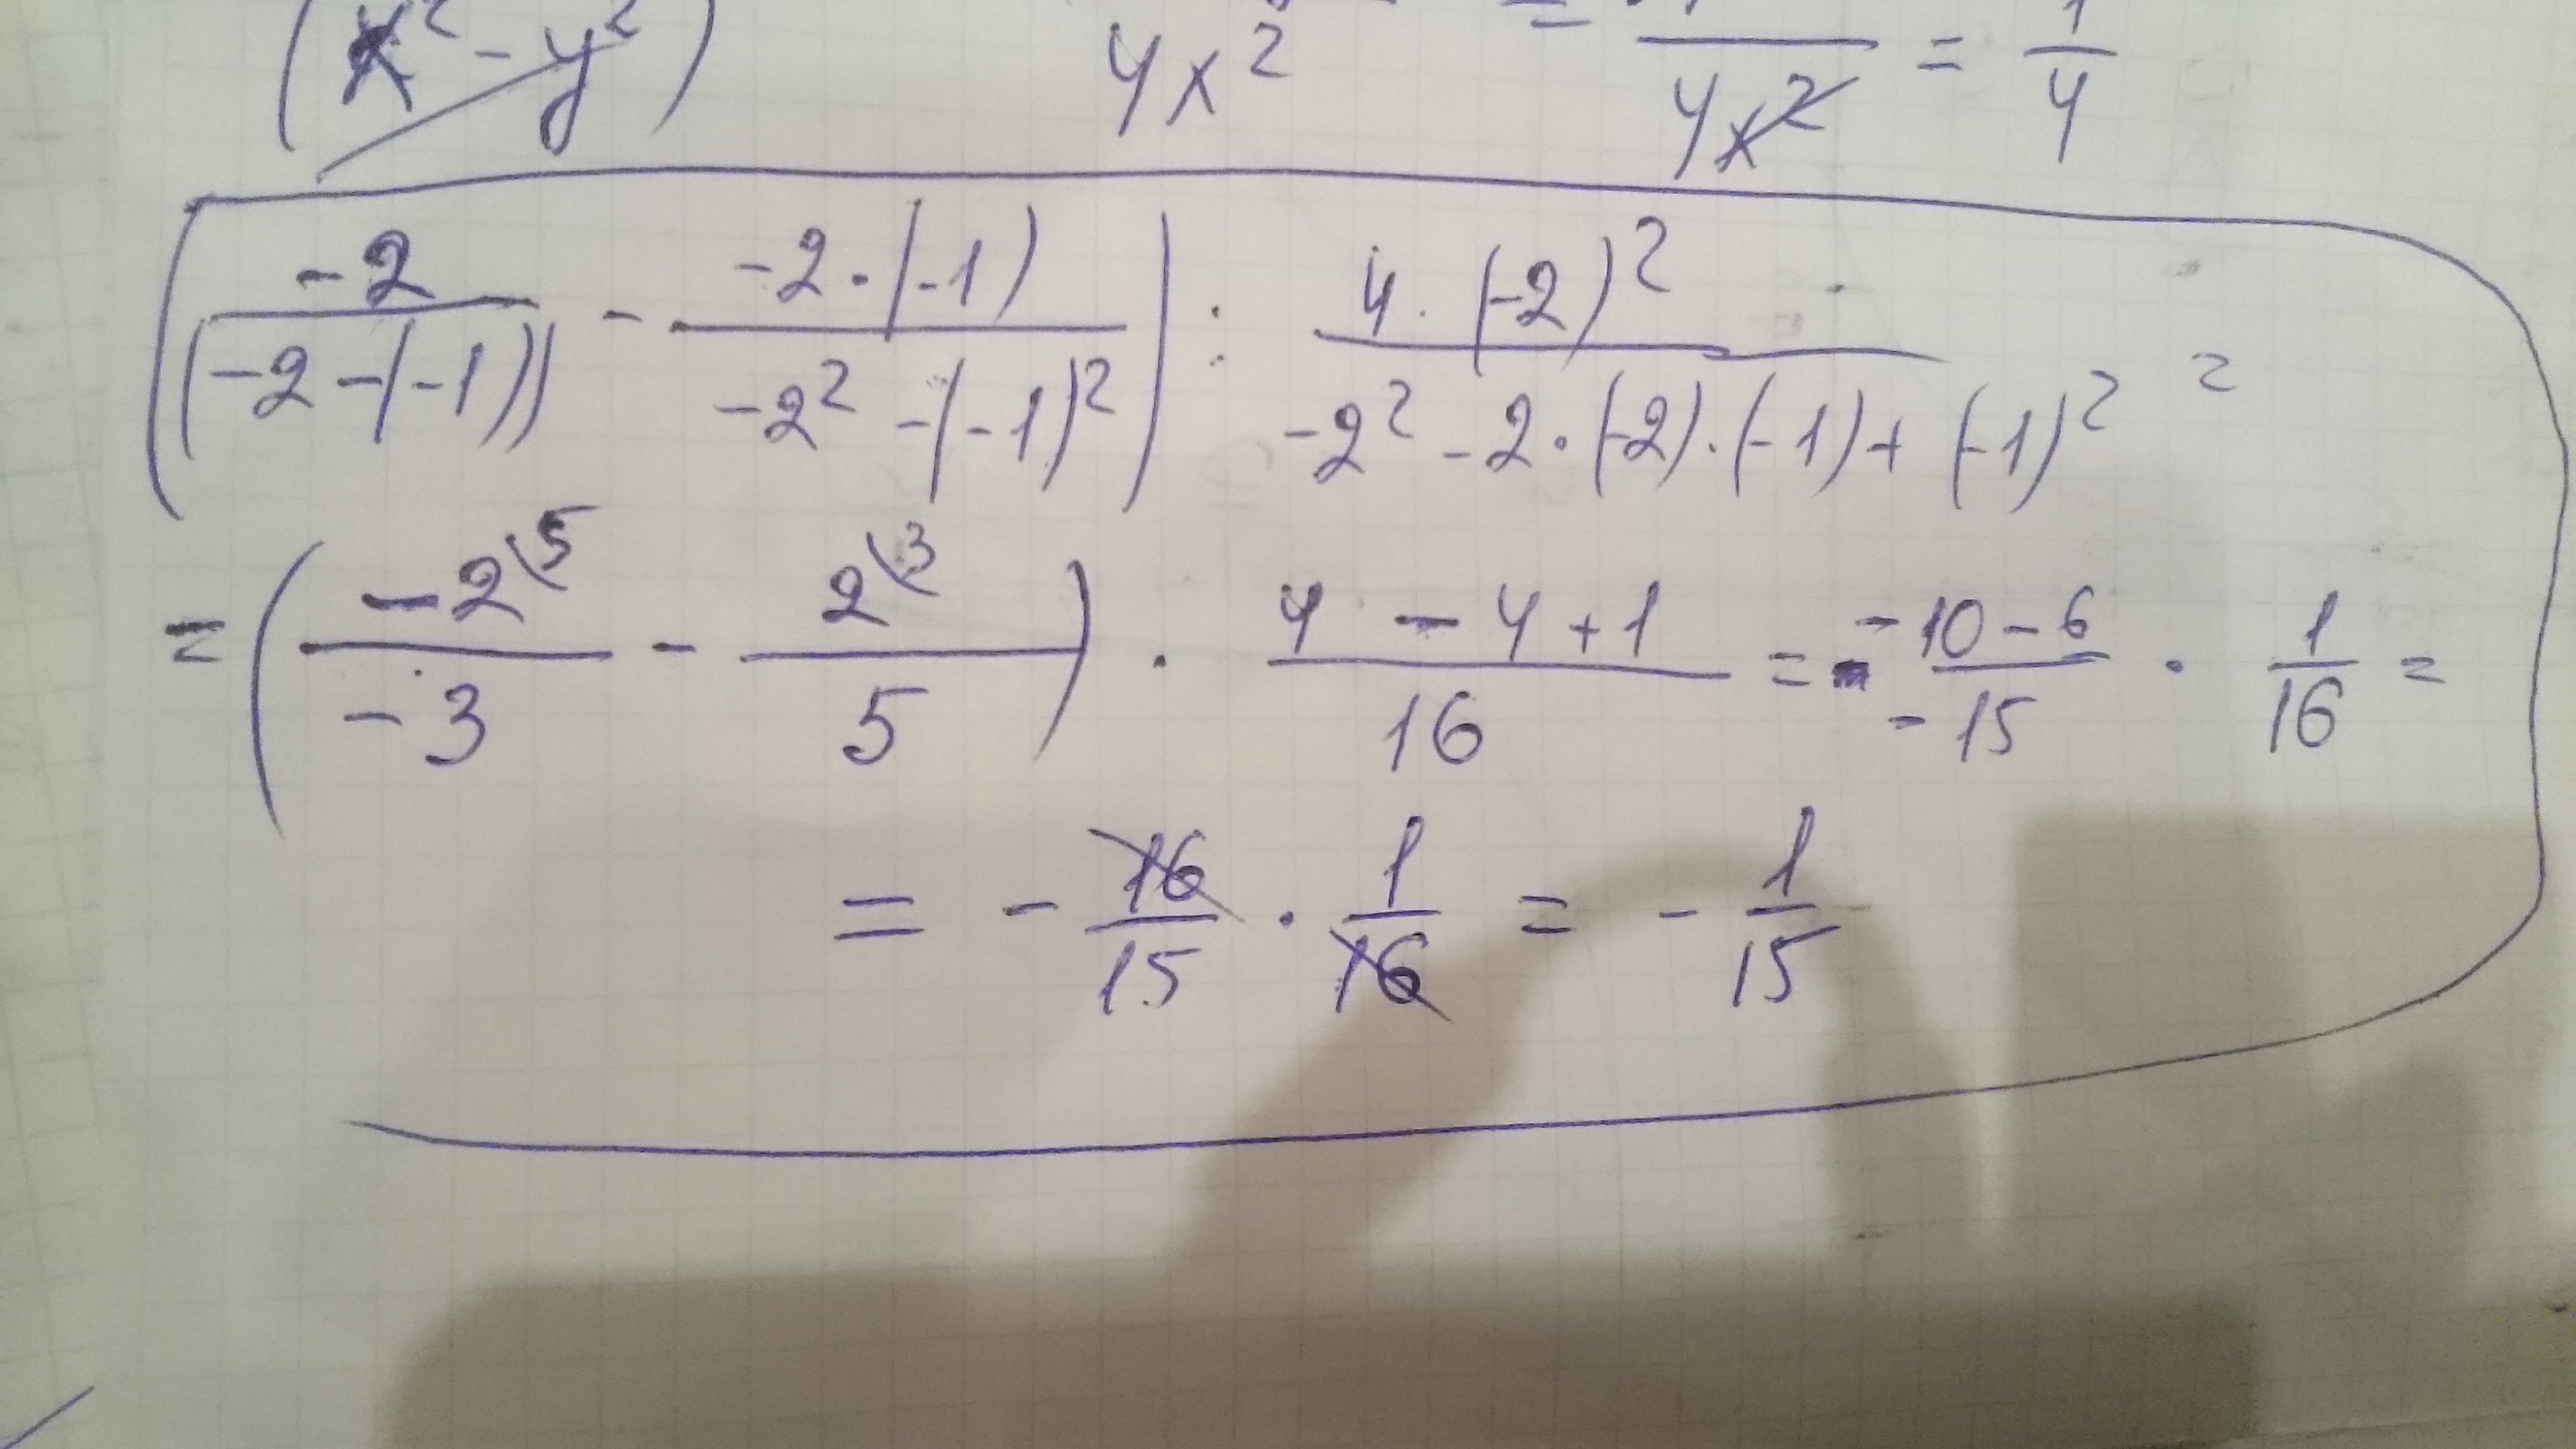 (x² - y²) 4x² = /4x² = 1/4
(-2/(-2-(-1)) - -2·(-1)/-2²-(-1)²) : 4·(-2)²/-2²-2·(-2)·(-1)+(-1)² =
= (-2\5/-3 - 2\3/5) · 4-4+1/16 = -10-6/-15 · 1/16 =
= - 16/15 · 1/16 = - 1/15